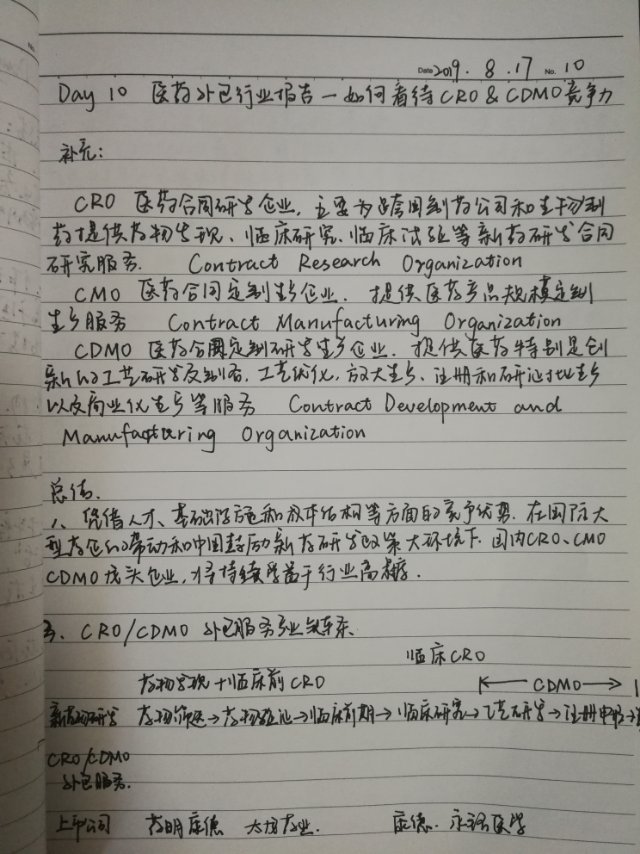 Date 2019. 8. 17 No. 10
Day 10 医药外包行业报告一如何看待CRO & CDMO竞争力
补充:
CRO 医药合同研发企业, 主要为跨国制药公司和生物制
药提供药物发现、临床研究、临床试验等新药研发合同
研究服务. Contract Research Organization
CMO 医药合同定制生产企业. 提供医药产品规模定制
生产服务 Contract Manufacturing Organization
CDMO 医药合同定制研发生产企业. 提供医药特别是创
新药的工艺研发及制备, 工艺优化, 放大生产、注册和验证批生产
以及商业化生产等服务 Contract Development and
Manufacturing Organization
总结.
1、凭借人才、基础设施和成本结构等方面的竞争优势. 在国际大
型药企的带动和中国鼓励新药研发政策大环境下. 国内CRO、CMO
CDMO龙头企业, 将持续受益于行业高增.
3. CRO/CDMO 外包服务产业链
临床CRO
药物发现+临床前CRO
CDMO
新药研发 药物筛选→药物验证→临床前期→临床研究→工艺研发→注册申报→
CRO/CDMO
外包服务.
上市公司 药明康德 药业. 康德. 医学